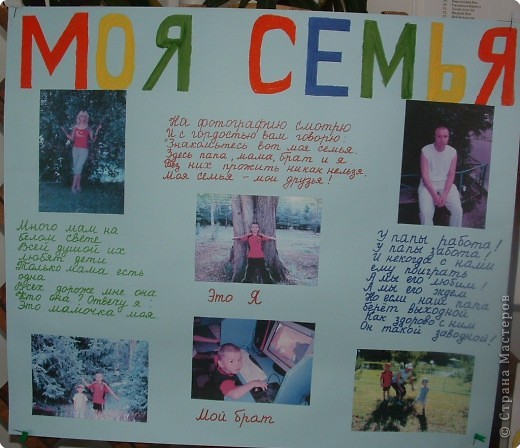 МОЯ СЕМЬЯ
На фотографию смотрю
И с гордостью вам говорю:
"Знакомьтесь вот моя семья.
Здесь папа, мама, брат и я
Без них прожить никак нельзя.
Моя семья - мои друзья!
Много мам на
белом свете
Всей душой их
любят дети
Только мама есть
одна
Всех дороже мне она
Кто она? Отвечу я:
Это мамочка моя
Это Я
Мой брат
У папы работа!
У папы забота!
И некогда с нами
ему поиграть
А мы его любим!
А мы его ждем
Но если наш папа
берёт выходной
Как здорово с ним
Он такой заводной!
© Страна Мастеров